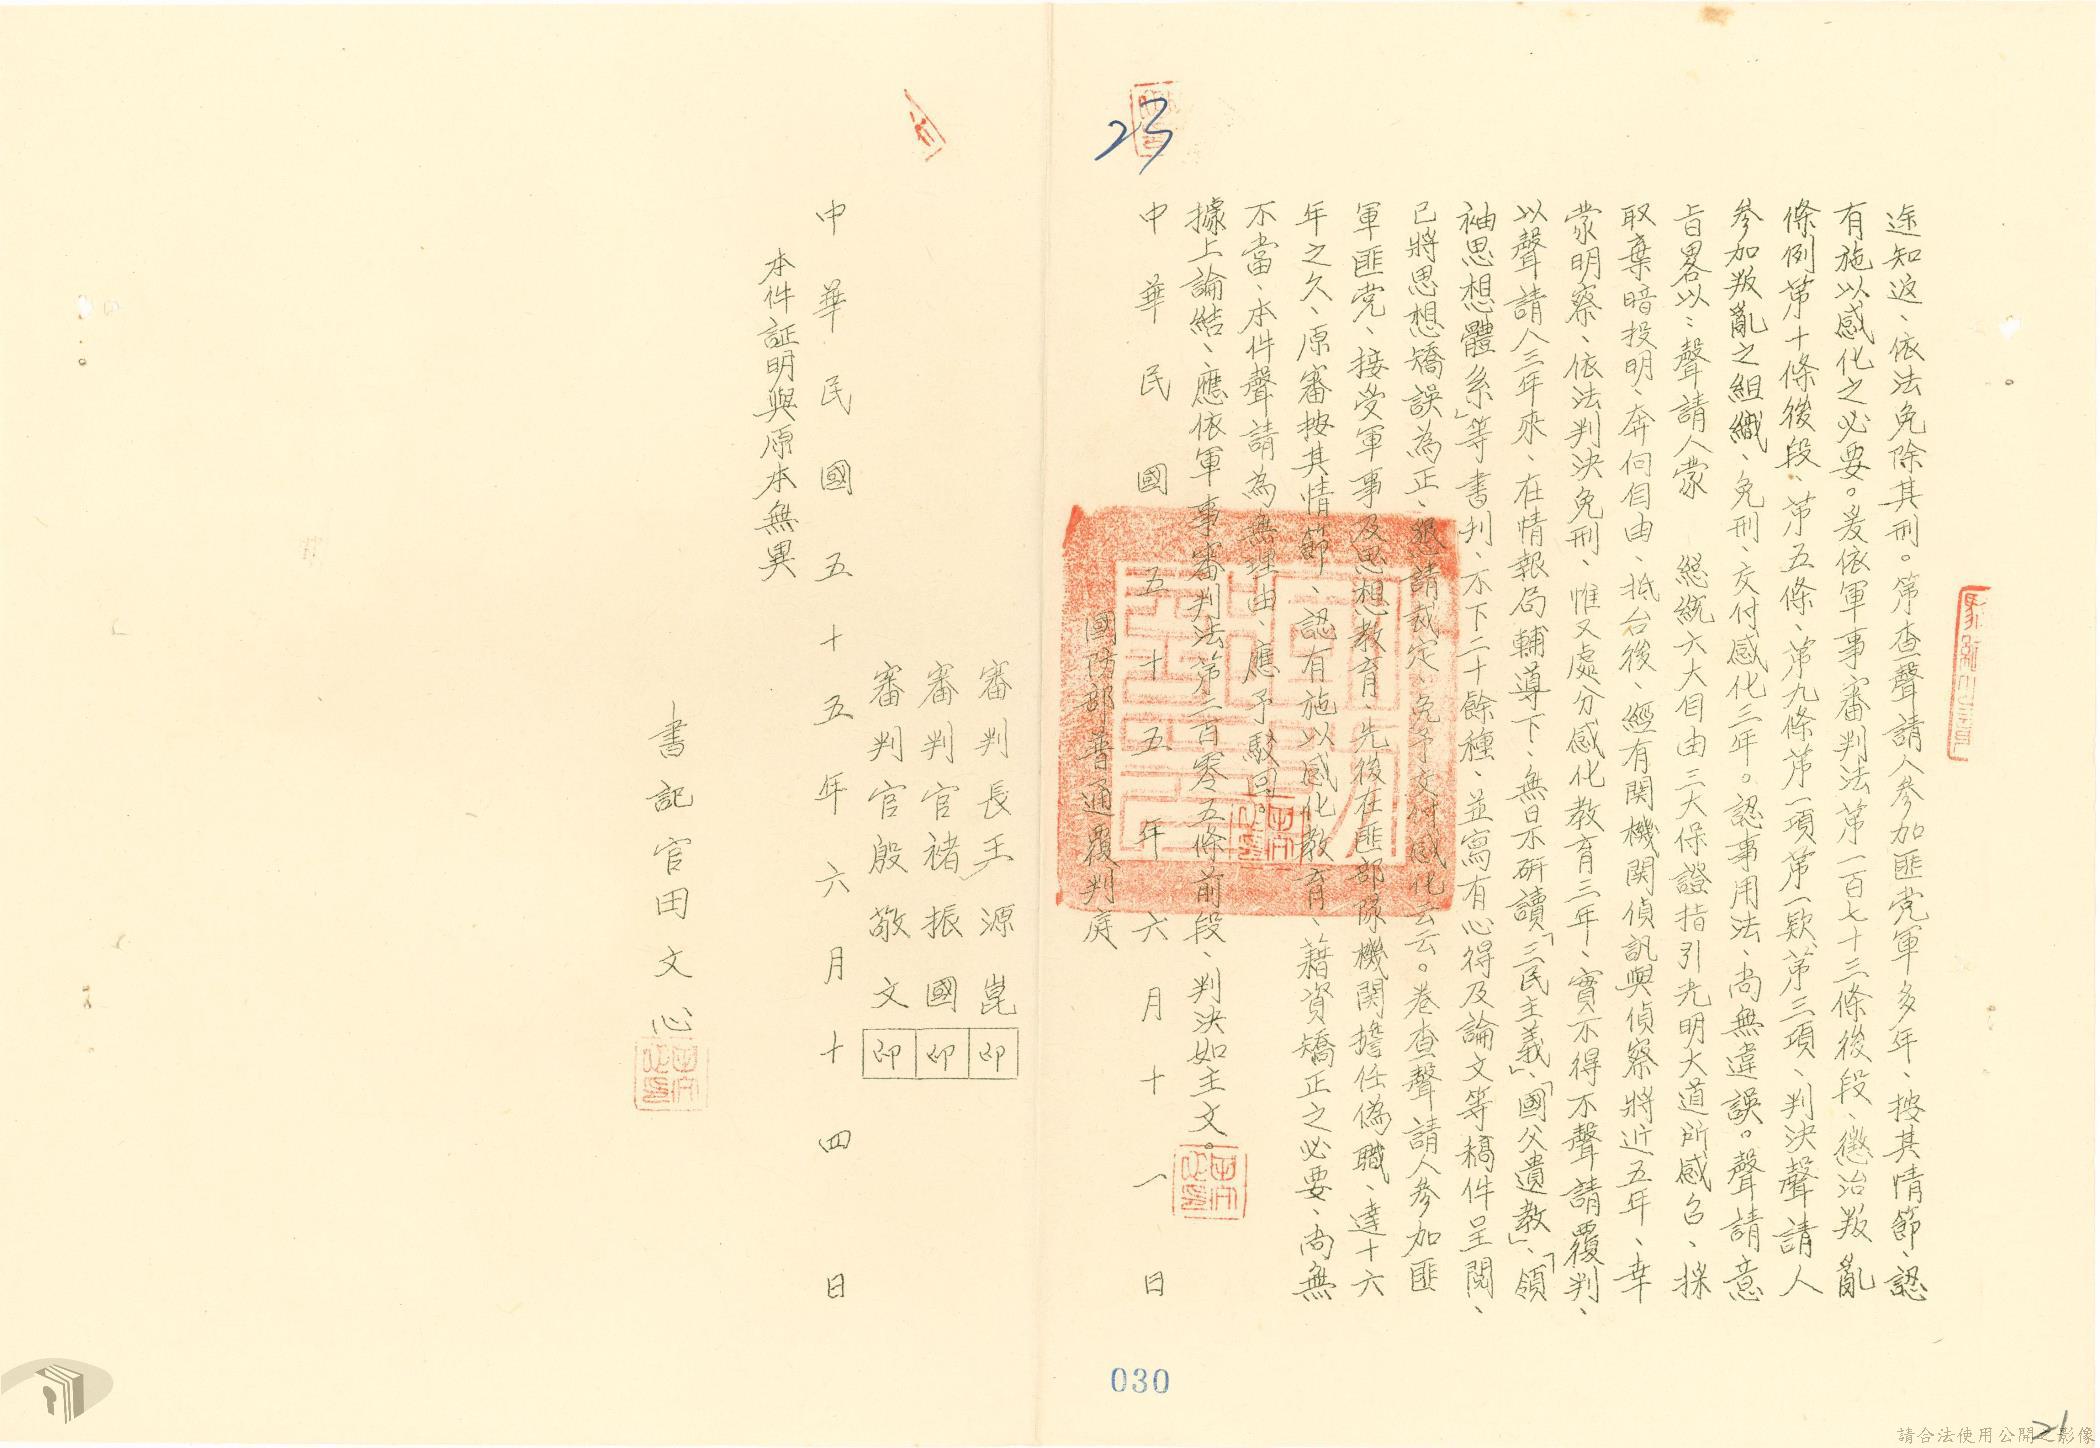 途知返、依法免除其刑。第查聲請人參加匪党軍多年、按其情節、認
有施以感化之必要。爰依軍事審判法第一百七十三條後段、懲治叛亂
條例第十條後段、第五條、第九條第一項第一欵、第三項、判決聲請人
參加叛亂之組織、免刑、交付感化三年。認事用法、尚無違誤。聲請意
旨畧以：聲請人蒙　總統六大自由三大保證指引光明大道所感召、採
取棄暗投明、奔向自由、抵台後、經有関機関偵訊與偵察將近五年、幸
蒙明察、依法判決免刑、惟又處分感化教育三年、實不得不聲請覆判、
以聲請人三年來、在情報局輔導下、無日不研讀「三民主義」、「國父遺教」、「領
袖思想體系」等書刊、不下二十餘種、並寫有心得及論文等稿件呈閱、
已將思想矯誤為正、懇請裁定、免予交付感化云云。卷查聲請人參加匪
軍匪党、接受軍事及思想教育、先後在匪部隊機関擔任偽職、達十六
年之久、原審按其情節、認有施以感化教育、藉資矯正之必要、尚無
不當、本件聲請為無理由、應予駁回。
據上論結、應依軍事審判法第二百零五條前段、判決如主文。
中華民國五十五年六月十一日
國防部普通覆判庭
審判長王源崑 印
審判官褚振國 印
審判官殷敬文 印
中華民國五十五年六月十四日
本件証明與原本無異
書記官田文心
23
030
21
請合法使用公開之影像